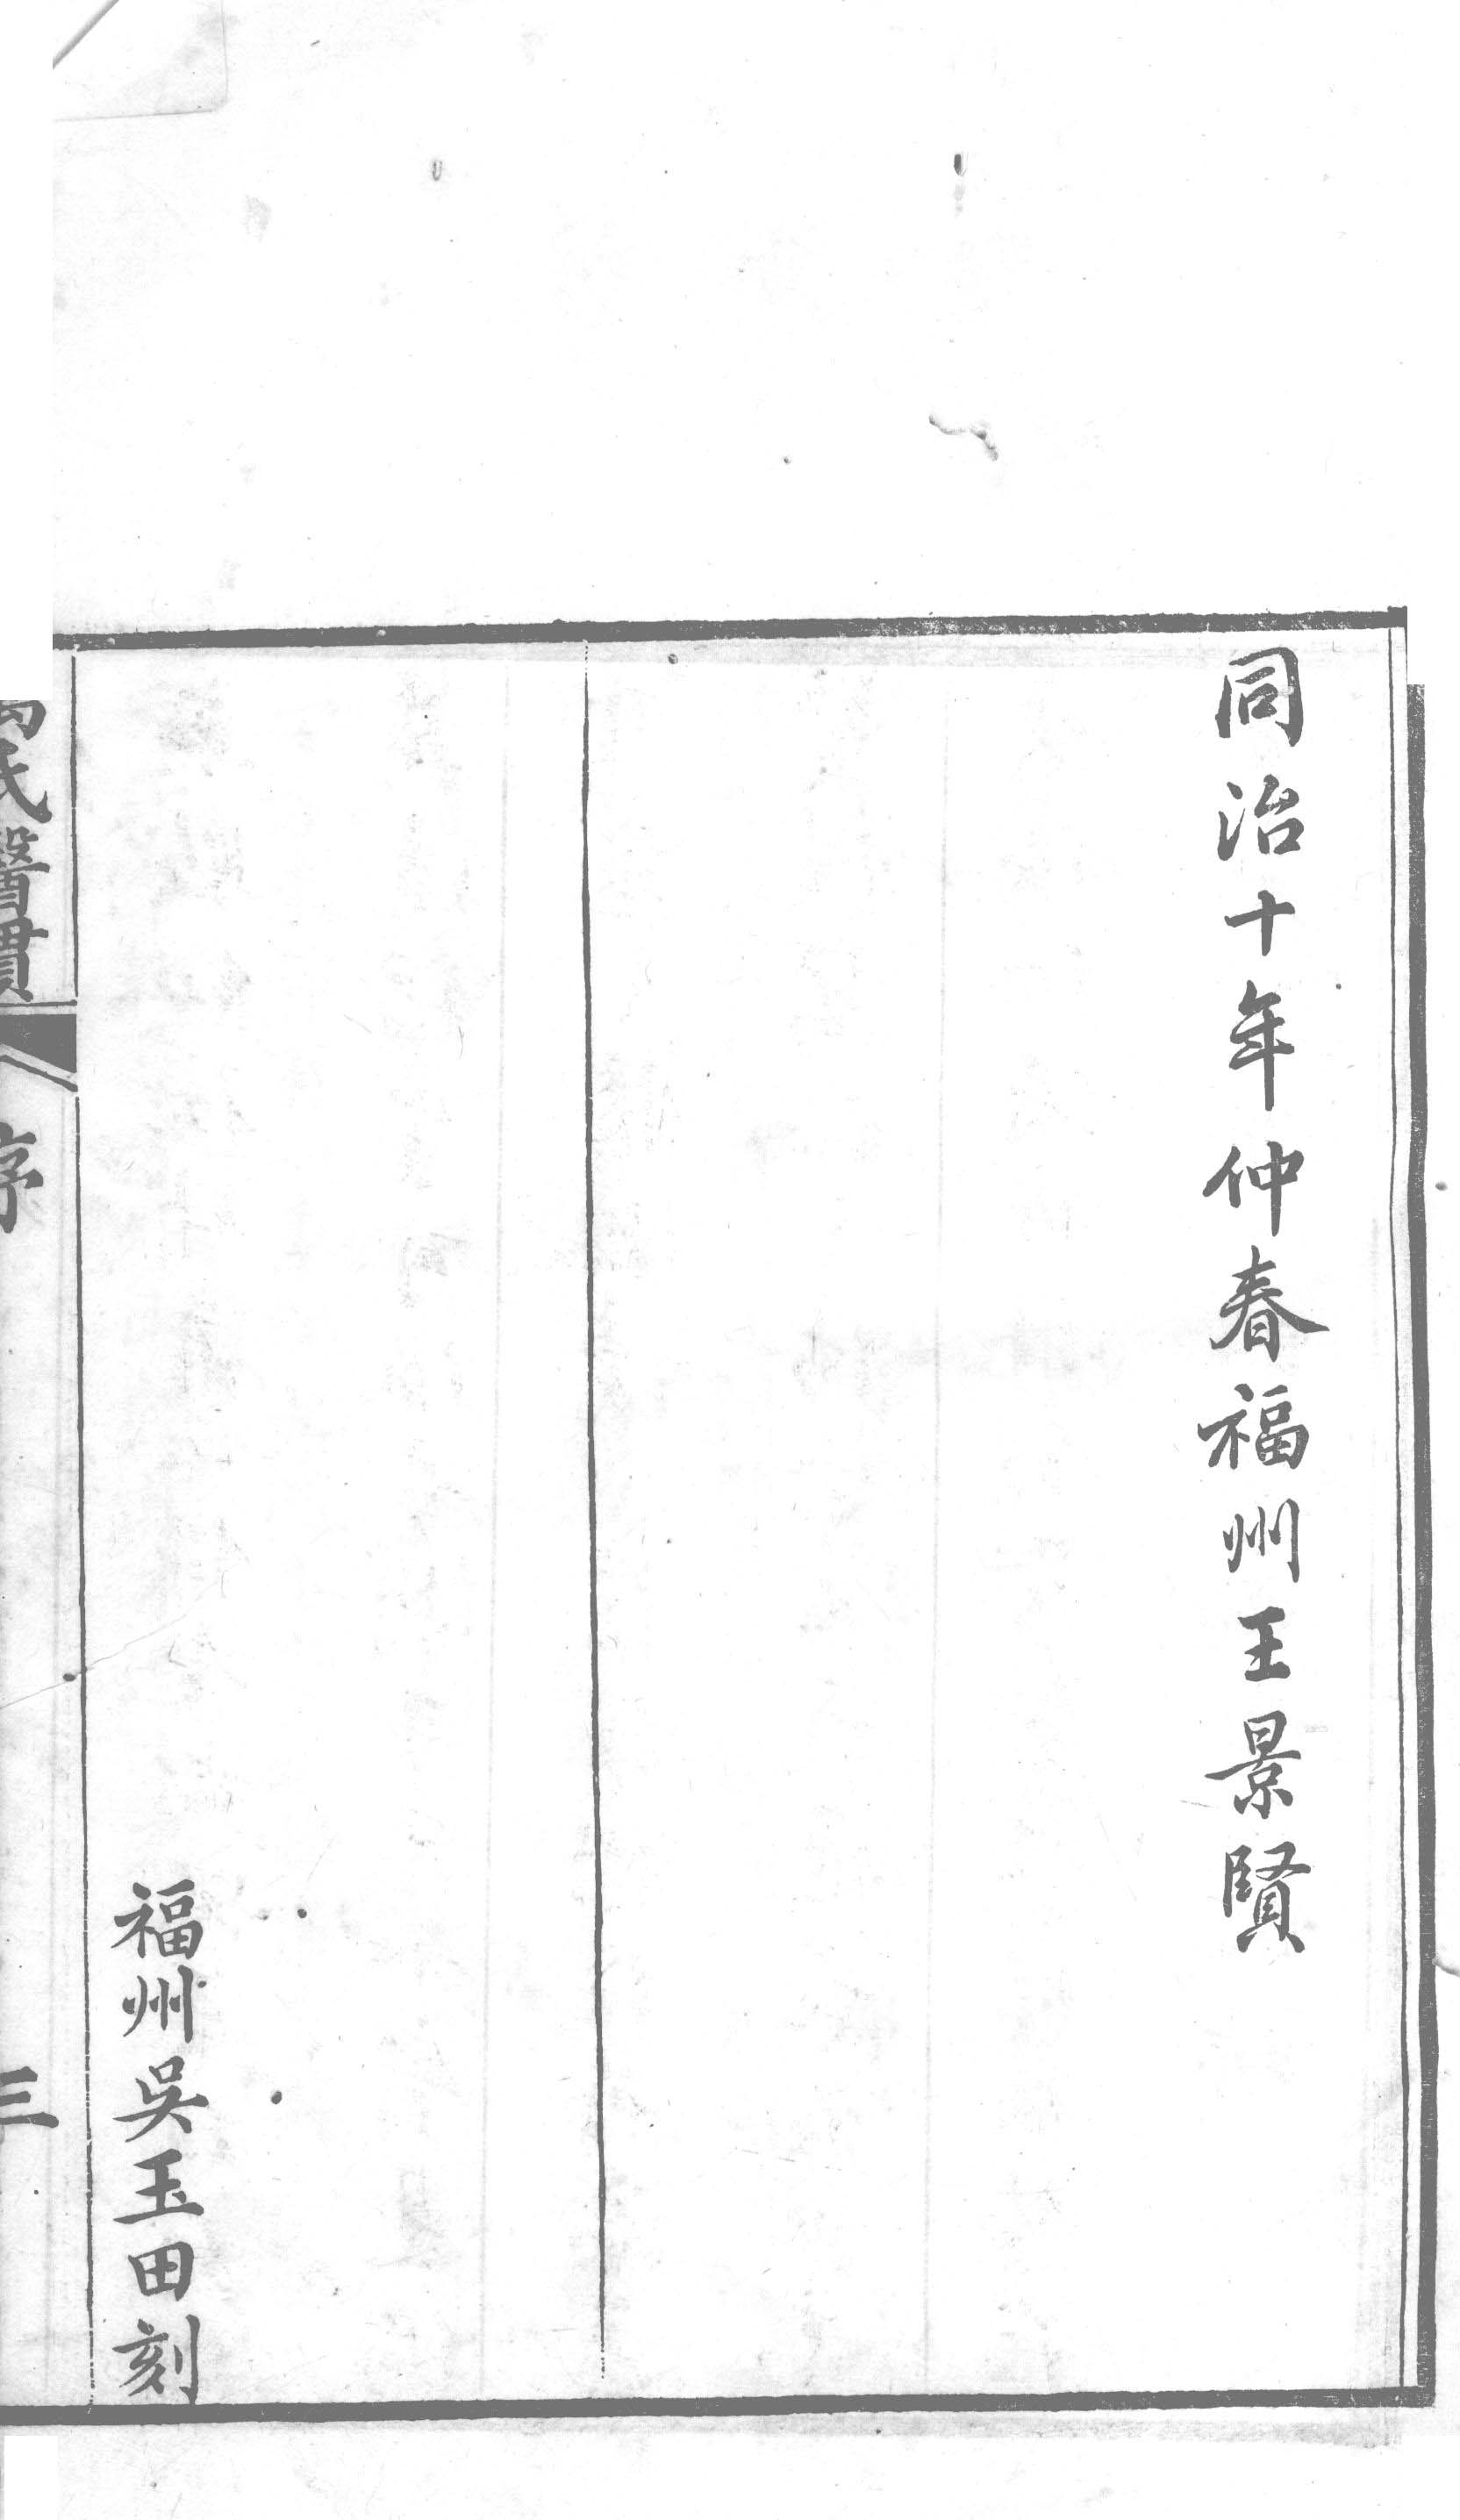 同治十年仲春福州王景賢
福州吳玉田刻
氏醫貫
序
三